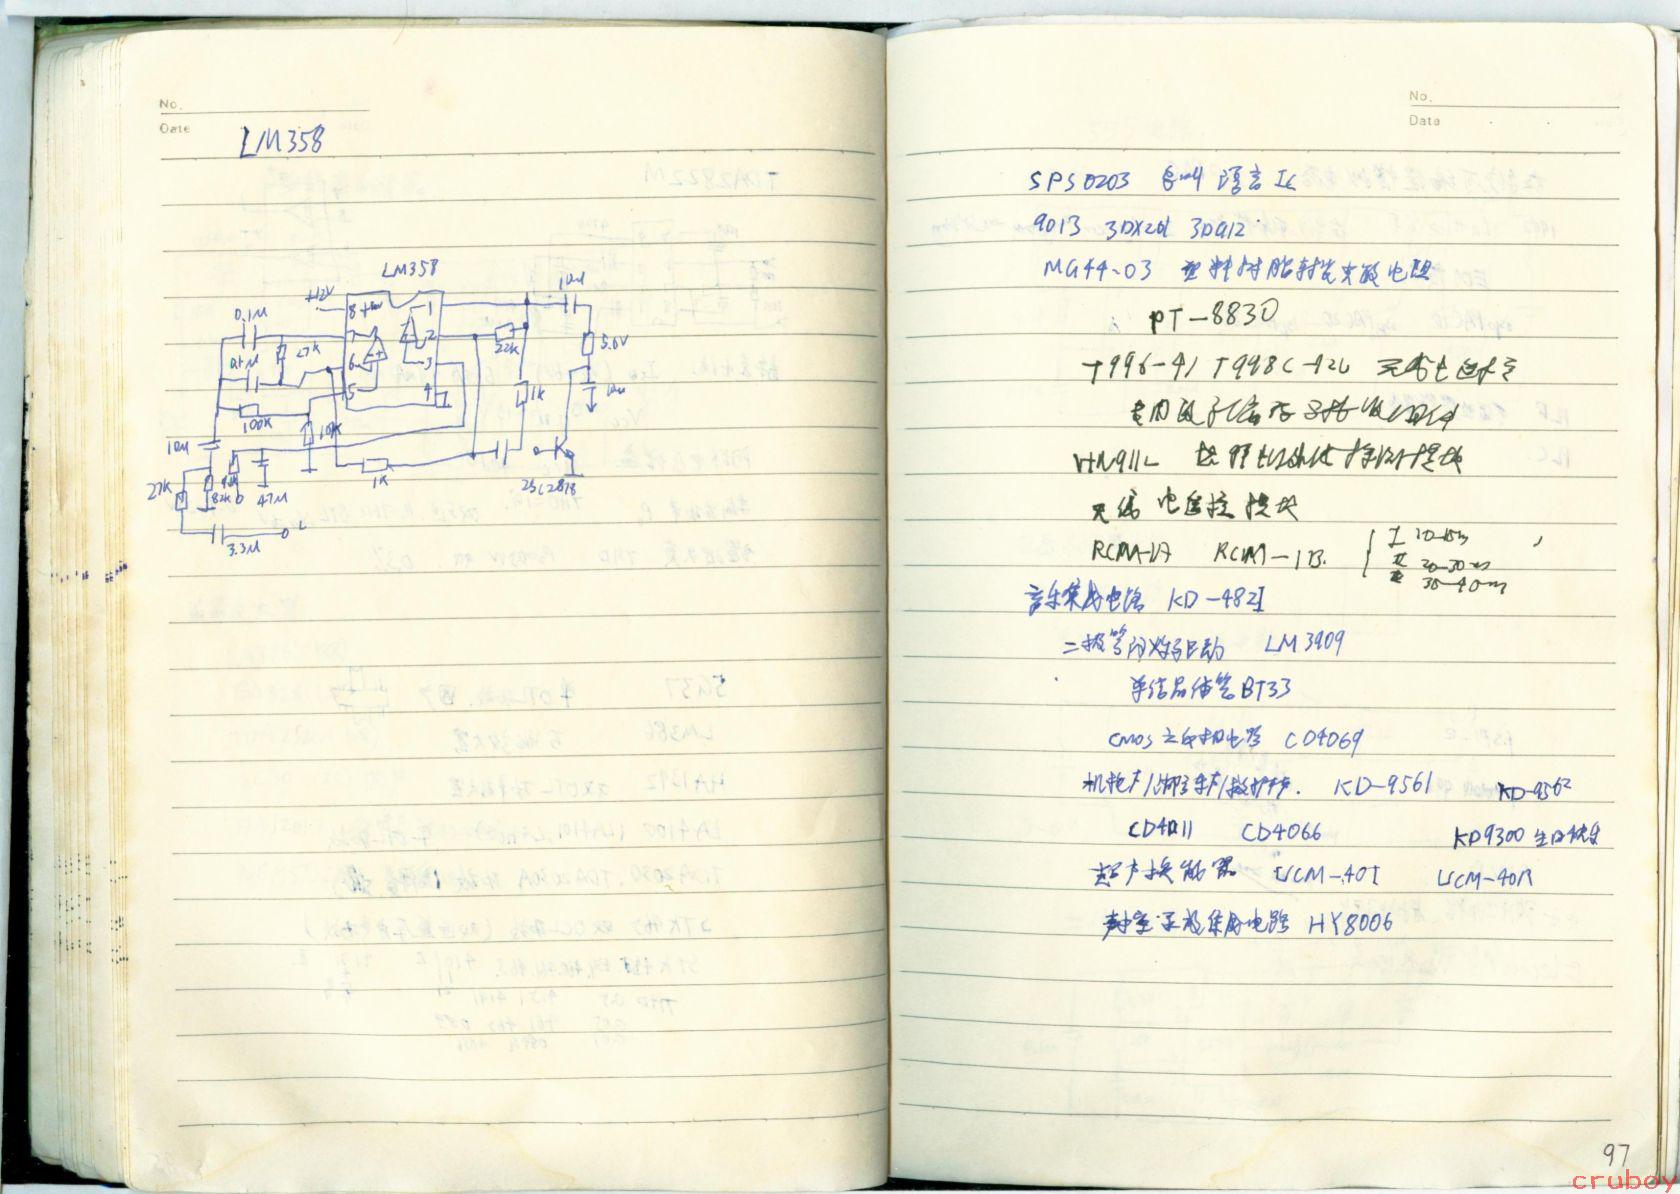 No.
Date
LM358
LM358
+12V
8 + 1
0.1M
7 2
27K
6 3
5 4
100K
10K
10u
27K
82K
47M
3.3M
1K
22K
1K
10u
5.6V
10u
2SC2878
No.
Date
SPS0203 语言IC
9013 3DX201 3DG12
MG44-03 塑料树脂封装光敏电阻
PT-8830
专用
VH911L
无线电遥控模块
RCM-1A RCM-1B
I 10-15m
II 20-30m
III 30-40m
音乐集成电路 KD-482I
二极管闪烁驱动 LM3909
单结晶体管BT33
CMOS 六反相电路 CD4069
机枪声/ KD-9561 KD-9562
CD4011 CD4066 KD9300 生日快乐
超声换能器 UCM-40T UCM-40R
集成电路 HY8006
97
cruboy